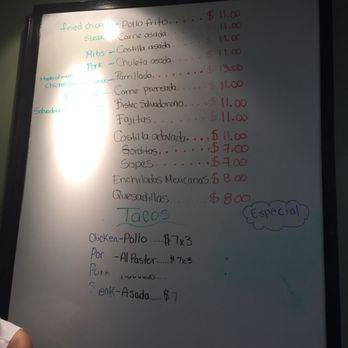 fried chicken - Pollo frito $11.00
Steak - Carne asada 11.00
Ribs - Costilla asada 11.00
Pork - Chuleta asada $11.00
Parrillada $13.00
Chicken Carne preparada $11.00
Bistec Salvadoreño $11.00
Fajitas $11.00
Costilla adovada $11.00
Gorditas $7.00
Sopes $7.00
Enchiladas Mexicanas $8.00
Quesadillas $8.00
Tacos
Especial
Chicken - Pollo $7x3
Por - Al Pastor $7x3
Asada $7